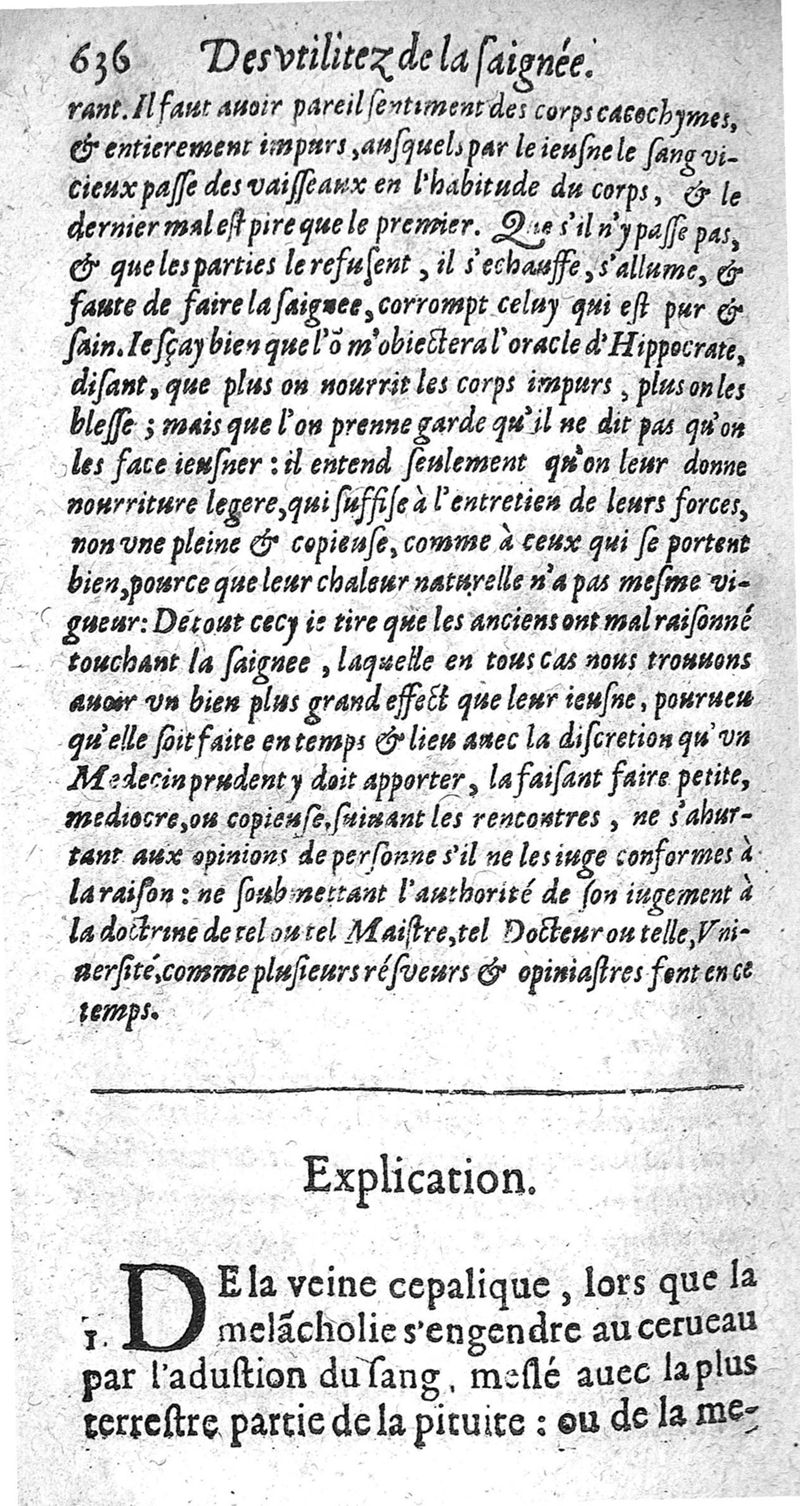 636 Des vtilitez de la ſaignée.
rant. Il faut auoir pareil ſentiment des corps cacochymes,
& entierement impurs, auſquels par le ieuſne le ſang vi-
cieux paſſe des vaiſſeaux en l'habitude du corps, & le
dernier mal eſt pire que le premier. Que s'il n'y paſſe pas,
& que les parties le refuſent, il s'echauffe, s'allume, &
faute de faire la ſaignee, corrompt celuy qui eſt pur &
ſain. Ie ſçay bien que l'õ m'obiectera l'oracle d'Hippocrate,
diſant, que plus on nourrit les corps impurs, plus on les
bleſſe ; mais que l'on prenne garde qu'il ne dit pas qu'on
les face ieuſner : il entend ſeulement qu'on leur donne
nourriture legere, qui ſuffiſe à l'entretien de leurs forces,
non vne pleine & copieuſe, comme à ceux qui ſe portent
bien, pource que leur chaleur naturelle n'a pas meſme vi-
gueur: De tout cecy ie tire que les anciens ont mal raiſonné
touchant la ſaignee, laquelle en tous cas nous trouuons
auoir vn bien plus grand effect que leur ieuſne, pourueu
qu'elle ſoit faite en temps & lieu auec la diſcretion qu'vn
Medecin prudent y doit apporter, la faiſant faire petite,
mediocre, ou copieuſe, ſuiuant les rencontres, ne s'ahur-
tant aux opinions de perſonne s'il ne les iuge conformes à
la raiſon : ne ſoubmettant l'authorité de ſon iugement à
la doctrine de tel ou tel Maiſtre, tel Docteur ou telle, Vni-
uerſité, comme pluſieurs réſveurs & opiniaſtres font en ce
temps.
Explication.
DE la veine cepalique, lors que la
1. melãcholie s'engendre au cerueau
par l'aduſtion du ſang, meſlé auec la plus
terreſtre partie de la pituite : ou de la me-